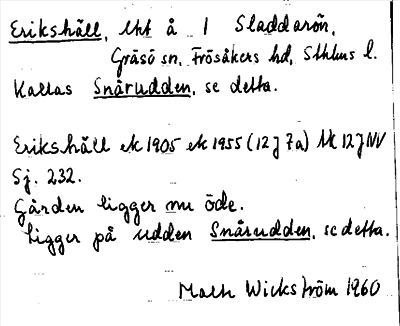 Erikshäll, lht å 1 Sladdarön,
Gräsö sn, Frösåkers hd, Sthlms l.
Kallas Snårudden, se detta.
Erikshäll ek 1905 ek 1955 (12J 7a) Sk 12J NV
Sj. 232.
Gården ligger nu öde.
Ligger på udden Snårudden, se detta.
Math Wickström 1960